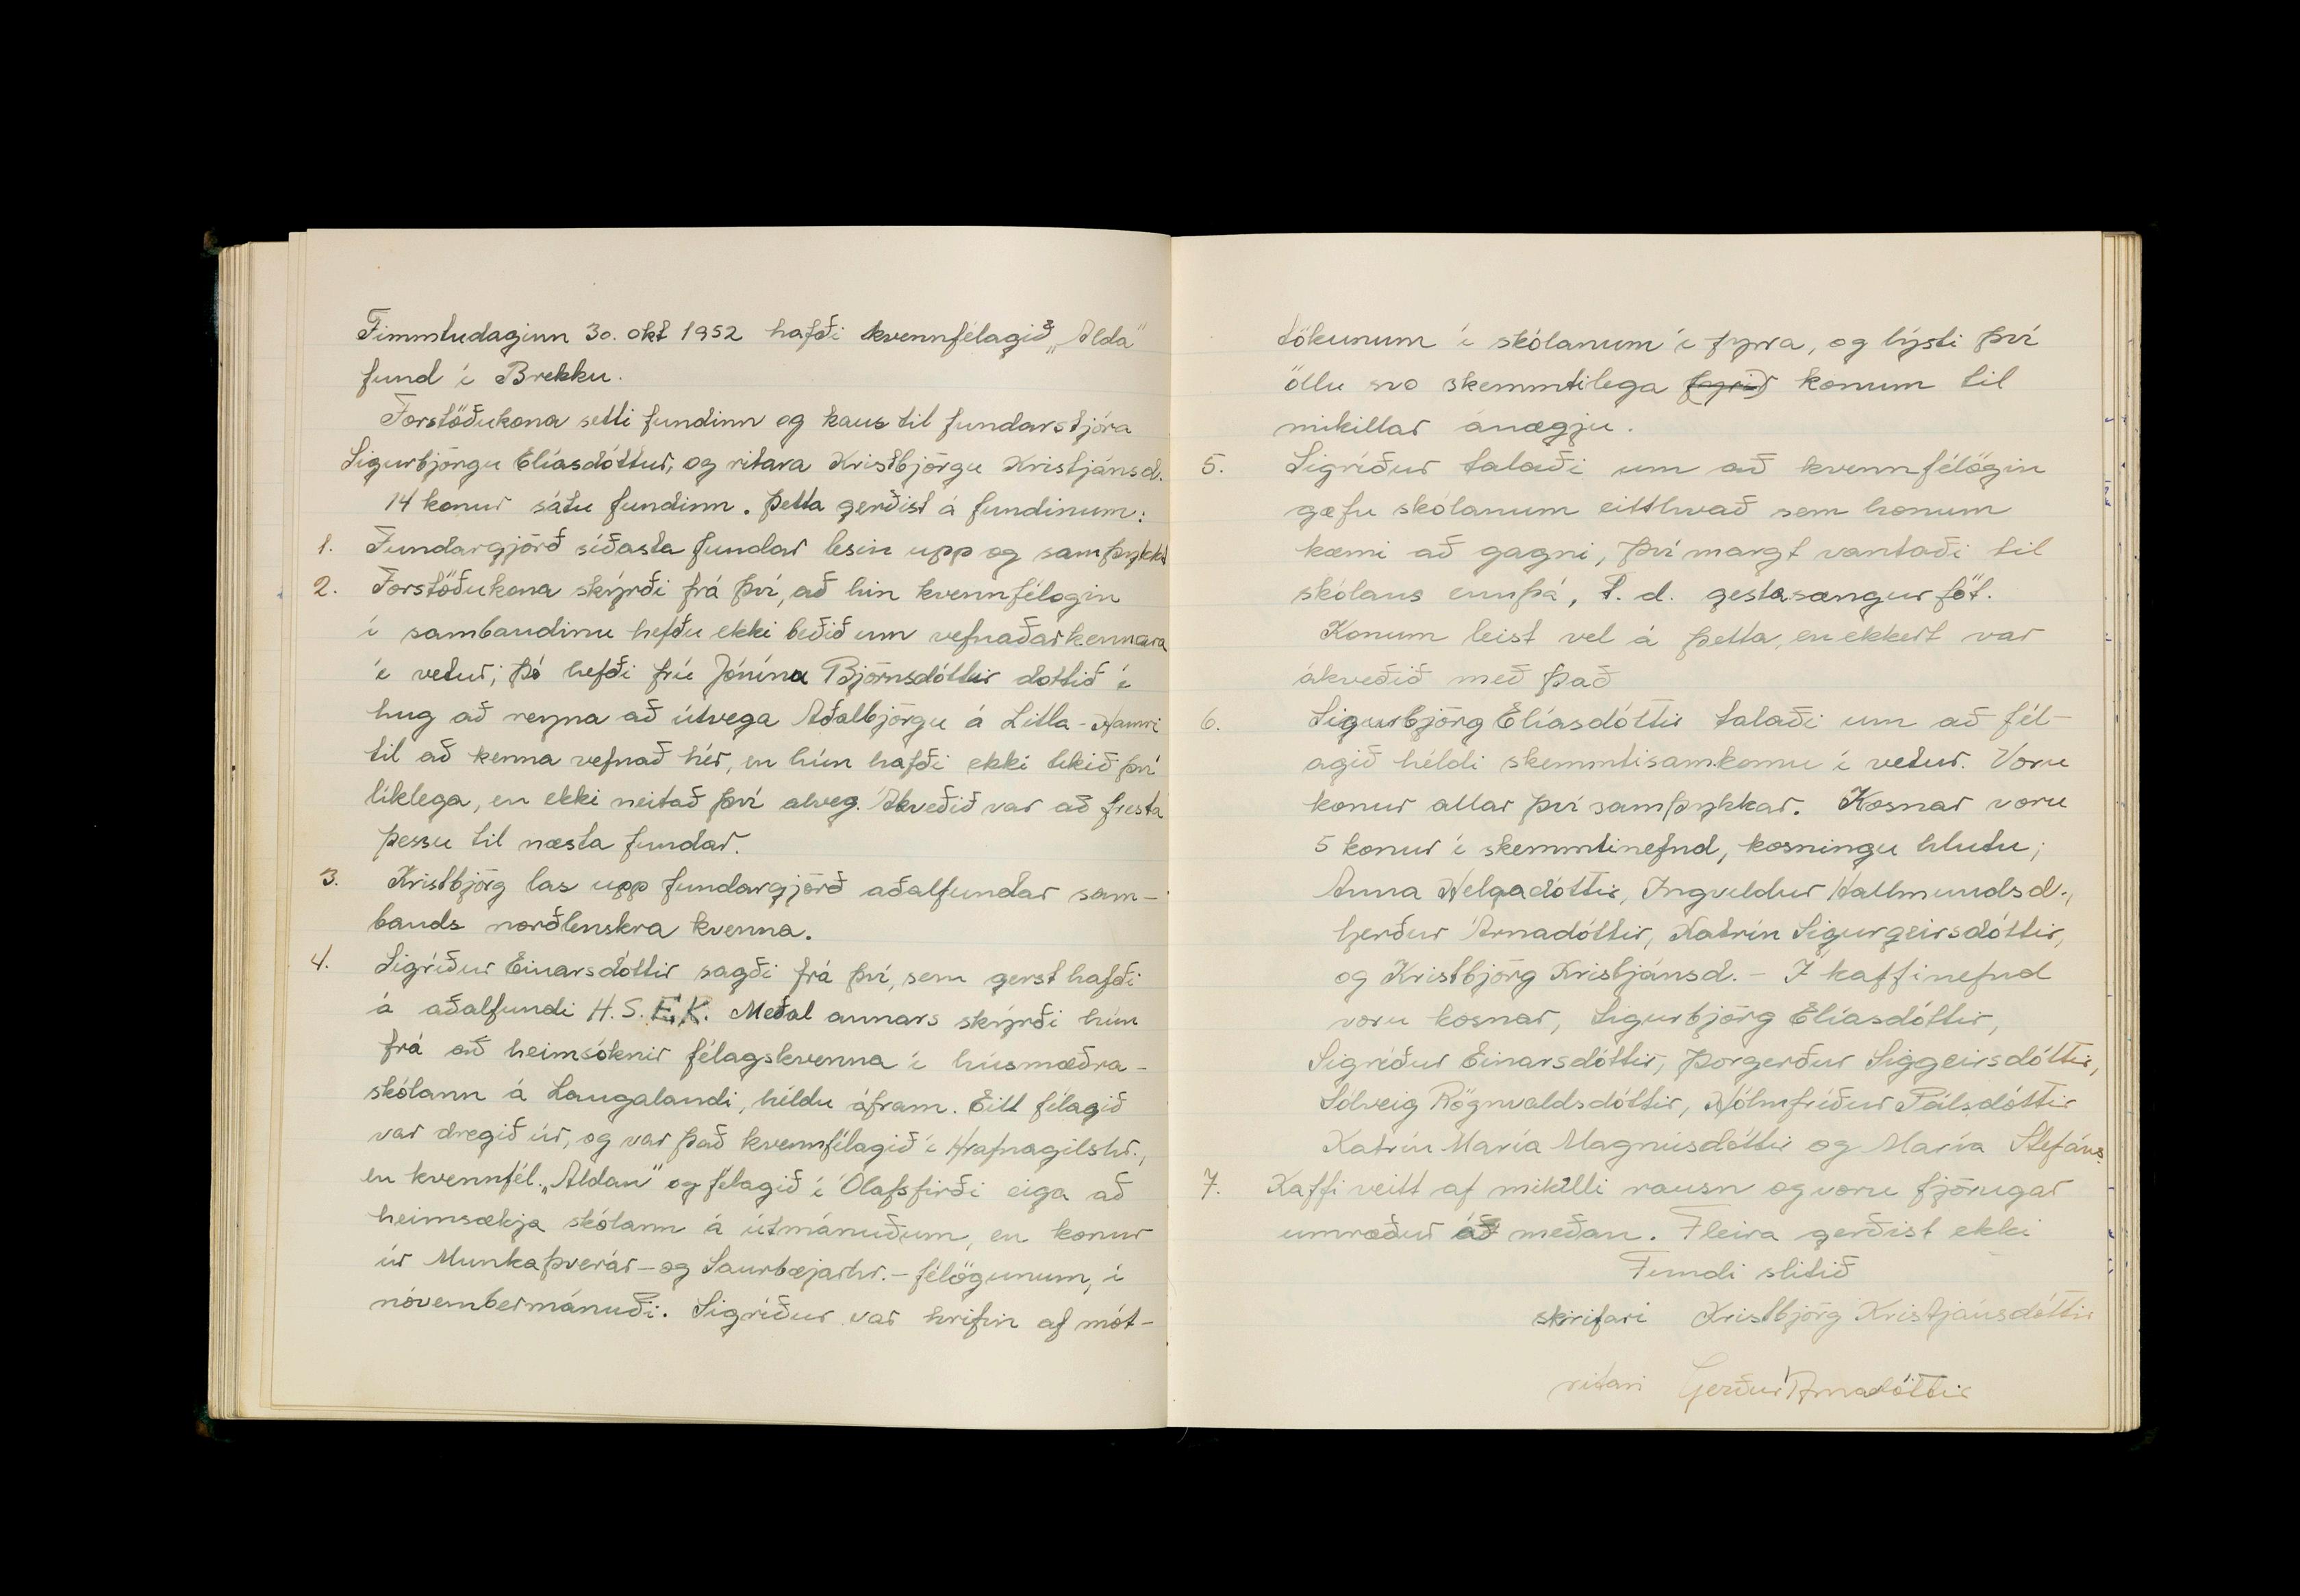 Fimmtudaginn 30. okt 1952 hafði kvennfélagið „Alda"
fund í Brekku.
Forstöðukona setti fundinn og kaus til fundarstjóra
Sigurbjörgu Elíasdóttur, og ritara Kristbjörgu Kristjánsd.
14 konur sátu fundinn. Þetta gerðist á fundinum:
1. Fundargjörð síðasta fundar lesin upp og samþykkt
2. Forstöðukona skýrði frá því, að hin kvennfélogin
í sambandinu hefðu ekki beðið um vefnaðarkennara
í vetur; þó hefði frú Jónína Björnsdóttir dottið í
hug að reyna að útvega Aðalbjörgu á Litla-Hamri
til að kenna vefnað hér, en hún hafði ekki tekið því
líklega, en ekki neitað því alveg. Ákveðið var að fresta
þessu til næsta fundar.
3. Kristbjörg las upp fundargjörð aðalfundar sam-
bands norðlenskra kvenna.
4. Sigríður Einarsdóttir sagði frá því, sem gerst hafði
á aðalfundi H.S.E.K. Meðal annars skýrði hún
frá að heimsóknir félagskvenna í húsmæðra-
skólann á Laugalandi, héldu áfram. Eitt félagið
var dregið úr, og var það kvennfélagið í Hrafnagilshr.,
en kvennfél. „Aldan" og félagið í Ólafsfirði eiga að
heimsækja skólann á útmánuðum, en konur
úr Munkaþverár- og Saurbæjarhr.- félögunum, í
nóvembermánuði. Sigríður var hrifin af mót-
tökunum í skólanum í fyrra, og lýsti því
öllu svo skemmtilega fyrir konum til
mikillar ánægju.
5. Sigríður talaði um að kvennfélögin
gæfu skólanum eitthvað sem honum
kæmi að gagni, því margt vantaði til
skólans ennþá, t.d. gestasængurföt.
Konum leist vel á þetta, en ekkert var
ákveðið með það
6. Sigurbjörg Elíasdóttir talaði um að fél-
agið héldi skemmtisamkomu í vetur. Voru
konur allar því samþykkar. Kosnar voru
5 konur í skemmtinefnd, kosningu hlutu;
Anna Helgadóttir, Ingveldur Hallmundsd.,
Gerður Árnadóttir, Katrín Sigurgeirsdóttir,
og Kristbjörg Kristjánsd. - Í kaffinefnd
voru kosnar, Sigurbjörg Elíasdóttir,
Sigríður Einarsdóttir, Þorgerður Siggeirsdóttir,
Sólveig Rögnvaldsdóttir, Hólmfríður Pálsdóttir
Katrín María Magnúsdóttir og María Stefáns.
7. Kaffi veitt af mikilli rausn og voru fjörugar
umræður á meðan. Fleira gerðist ekki
Fundi slitið
skrifari Kristbjörg Kristjánsdóttir
ritari Gerður Árnadóttir